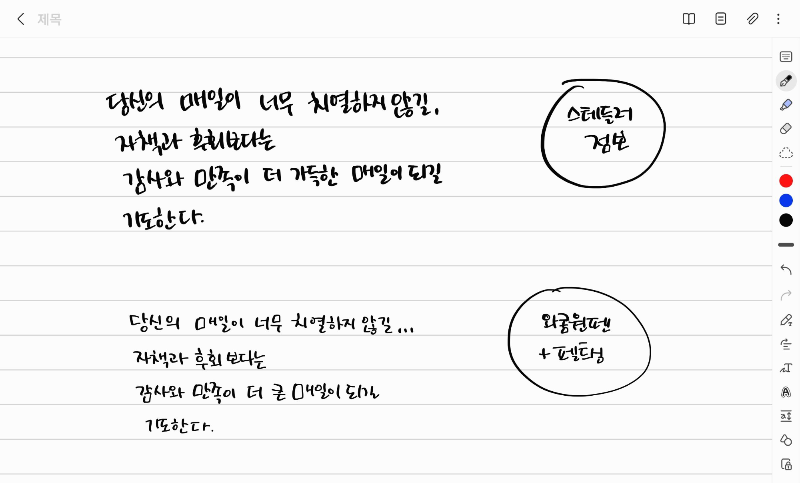 제목
당신의 매일이 너무 치열하지 않길.
자책과 후회보다는
감사와 만족이 더 가득한 매일이 되길
기도한다.
스테들러
점보
당신의 매일이 너무 치열하지 않길...
자책과 후회보다는
감사와 만족이 더 큰 매일이 되길
기도한다.
와콤원펜
+펠트심